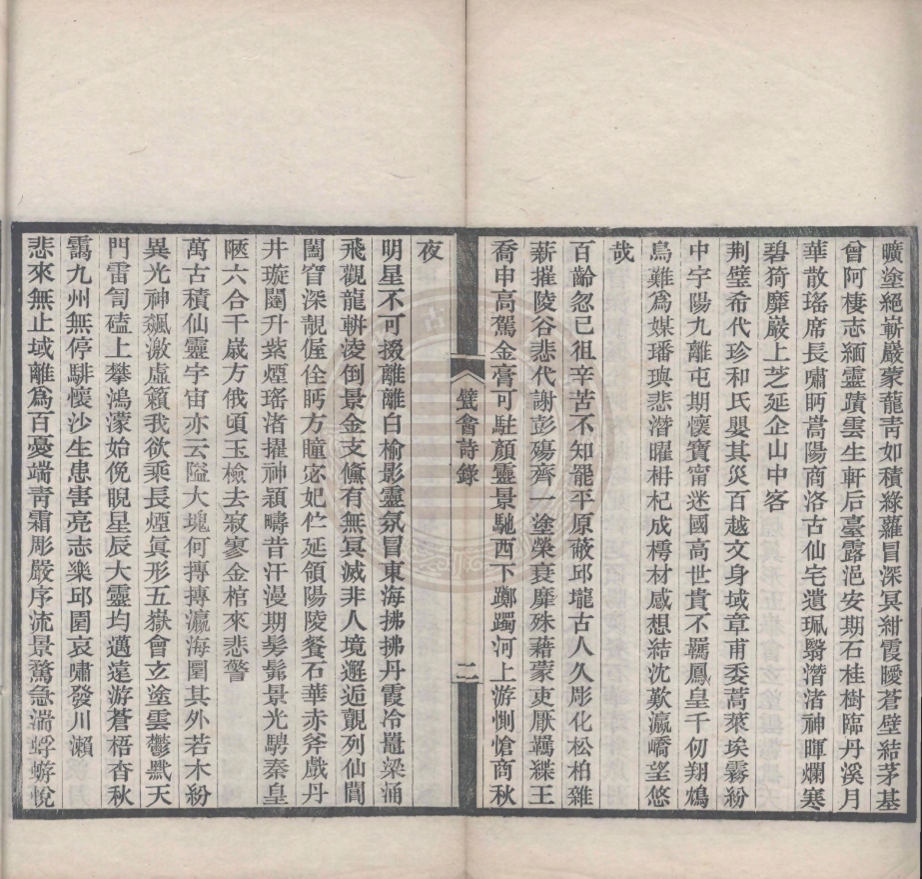 曠塗絕嶄巖蒙蘢靑如積綠蘿冒深冥紺霞曖蒼壁結茅基
曾阿棲志緬靈蹟雲生軒后臺露浥安期石桂樹臨丹溪月
華散瑤席長嘯眄嵩陽商洛古仙宅遺珮翳潛渚神暉爛寒
碧猗靡巖上芝延企山中客
荆璧希代珍和氏嬰其災百越文身域章甫委蒿萊埃霧紛
中宇陽九離屯期懷寶甯迷國高世貴不羈鳳皇千仞翔鴆
鳥難爲媒璠璵悲潛曜枏杞成樗材感想結沈歎瀛嶠望悠
哉
百齡忽已徂辛苦不知罷平原蔽邱壠古人久彫化松柏雜
薪摧陵谷悲代謝彭殤齊一塗榮衰靡殊藉蒙吏厭羈緤王
喬申高駕金膏可駐顏靈景馳西下躑躅河上游惻愴商秋
甓畣詩錄
二
夜
明星不可掇離離白榆影靈氛冒東海拂拂丹霞冷鼉梁涌
飛觀龍輧淩倒景金支儵有無冥滅非人境邂逅覿列仙閶
闔窅深靚偓佺眄方瞳宓妃伫延領陽陵餐石華赤斧戲丹
井璇闥升紫煙瑤渚擢神穎疇昔汗漫期髣髴景光騁秦皇
陋六合千嵗方俄頃玉檢去寂寥金棺來悲警
萬古積仙靈宇宙亦云隘大塊何摶摶瀛海圍其外若木紛
異光神飆激虛籟我欲乘長煙眞形五嶽會玄塗雲鬱黮天
門雷訇磕上攀鴻濛始俛睨星辰大靈均邁遠游蒼梧杳秋
靄九州無停騑懷沙生患害亮志樂邱園哀嘯發川瀨
悲來無止域離爲百憂端靑霜彫嚴序流景騖急湍蜉蝣悅